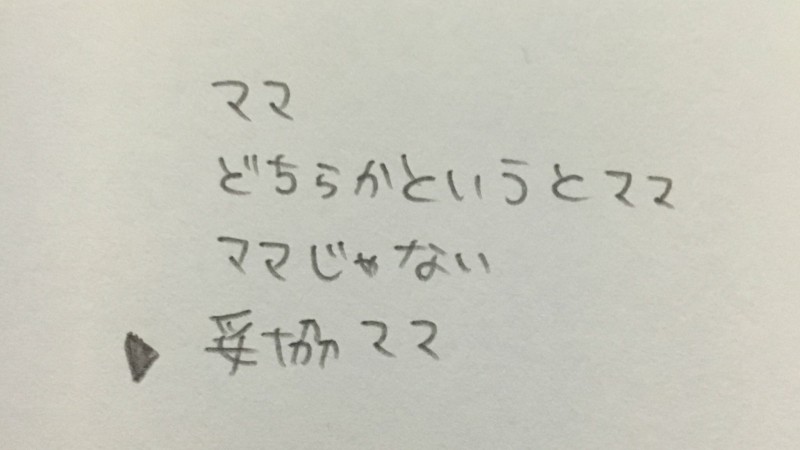 ママ
どちらかというとママ
ママじゃない
▶妥協ママ